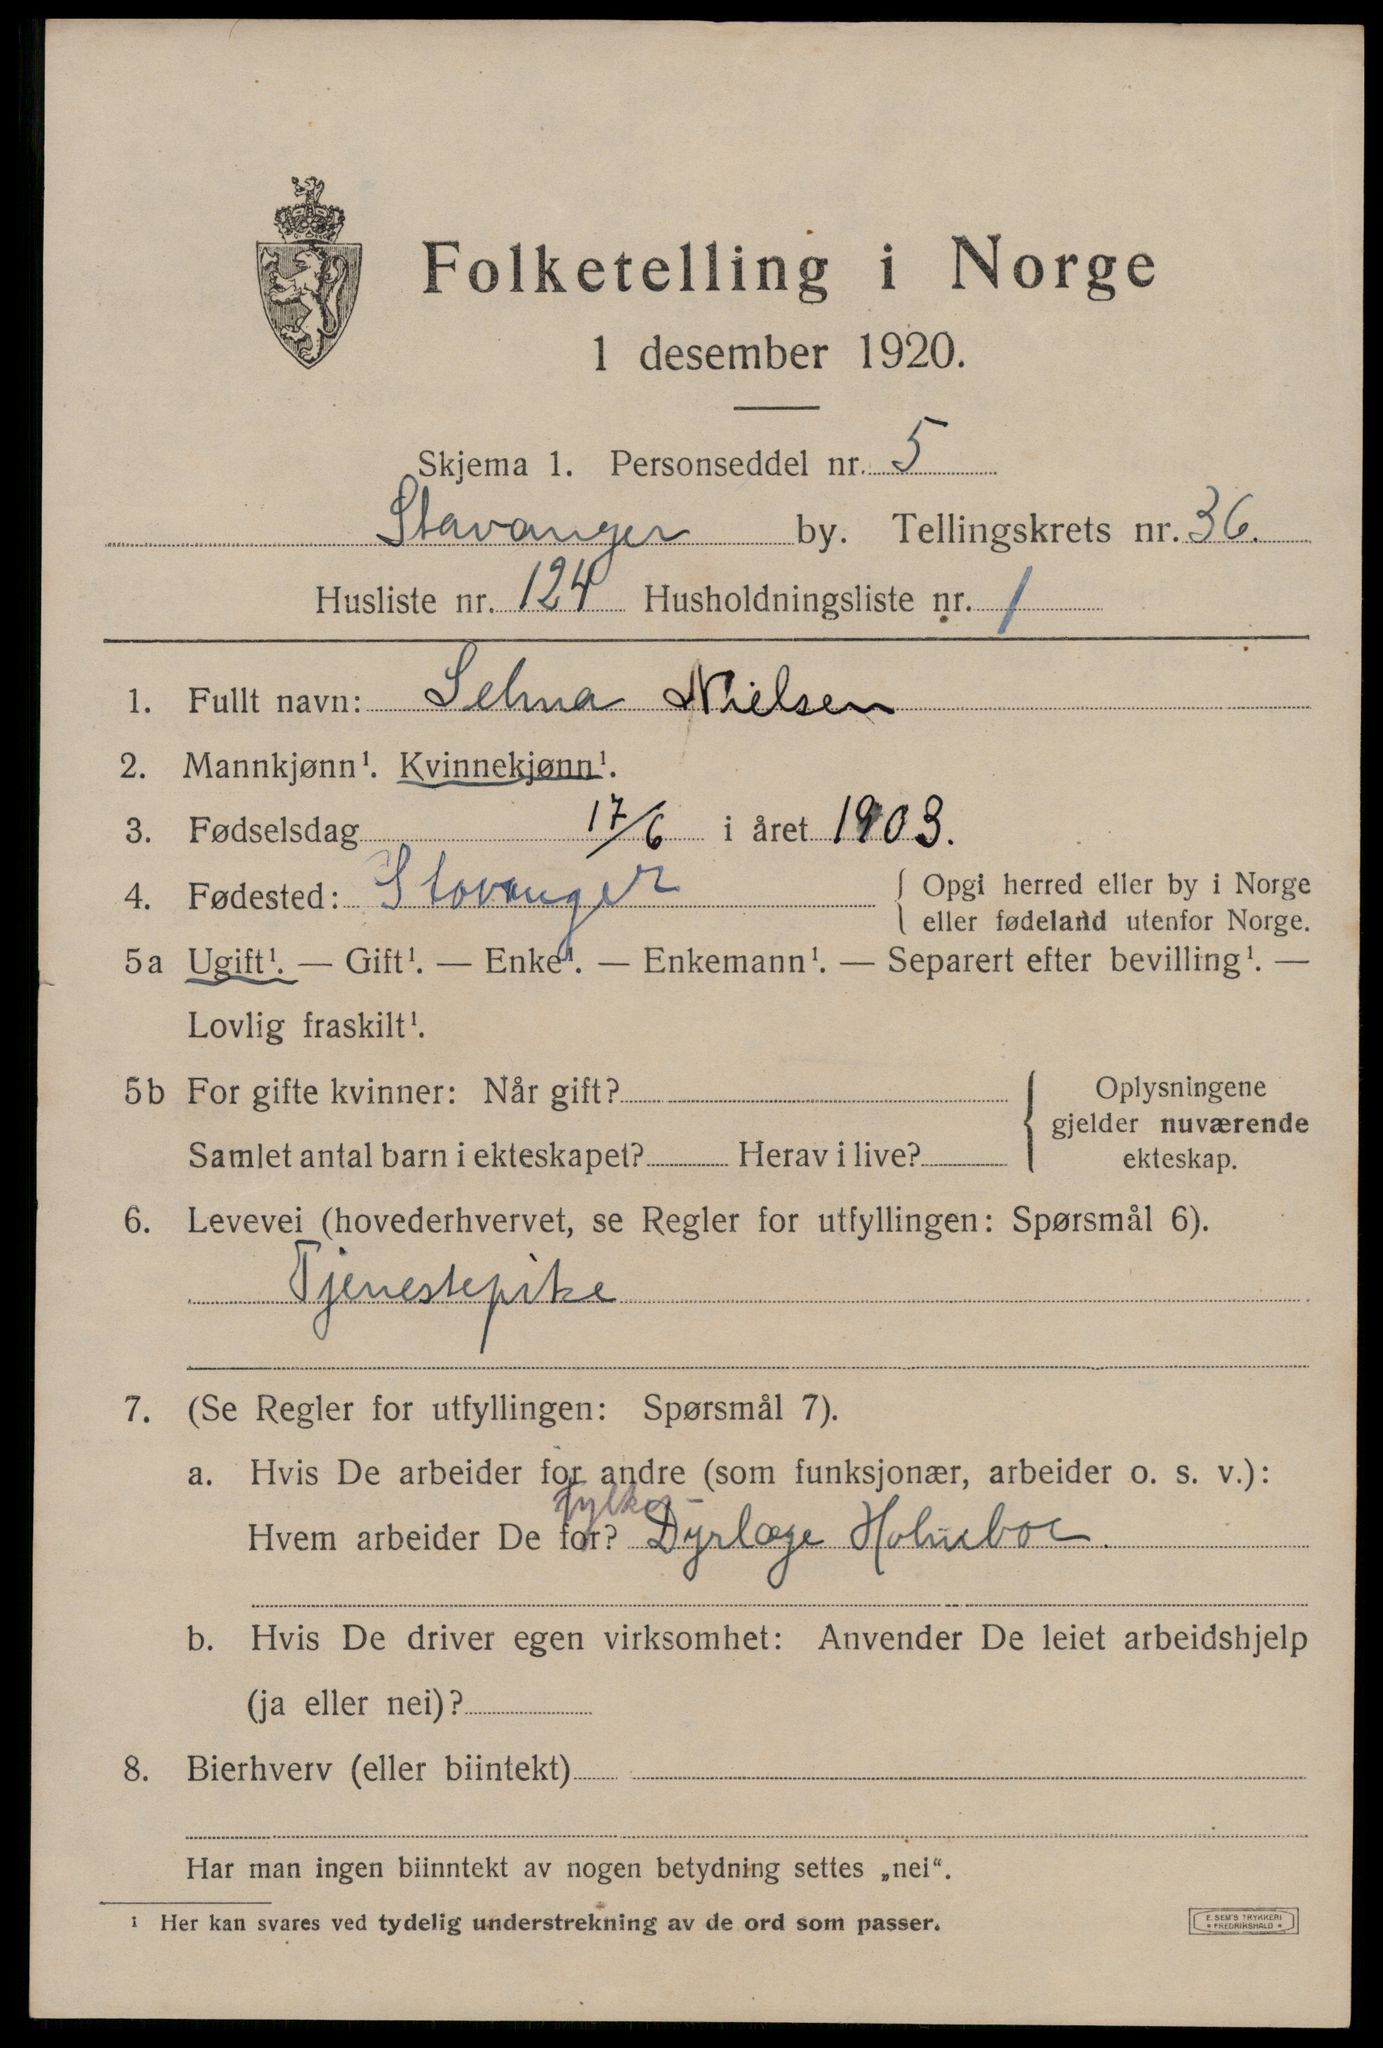 Folketelling i Norge
1 desember 1920.
Skjema 1. Personseddel nr. 5
Stavanger by. Tellingskrets nr. 36.
Husliste nr. 124 Husholdningsliste nr. 1
1. Fullt navn: Selma Nielsen
2. Mannkjønn¹. Kvinnekjønn¹.
3. Fødselsdag 17/6 i året 1903.
4. Fødested: Stavanger { Opgi herred eller by i Norge
eller fødeland utenfor Norge.
5a Ugift¹. — Gift¹. — Enke¹. — Enkemann¹. — Separert efter bevilling¹. —
Lovlig fraskilt¹.
5b For gifte kvinner: Når gift? { Oplysningene
gjelder nuværende
Samlet antal barn i ekteskapet? Herav i live? ekteskap.
6. Levevei (hovederhvervet, se Regler for utfyllingen: Spørsmål 6).
Tjenestepike
7. (Se Regler for utfyllingen: Spørsmål 7).
a. Hvis De arbeider for andre (som funksjonær, arbeider o. s. v.):
fylkes-
Hvem arbeider De for? Dyrlæge Holmboe.
b. Hvis De driver egen virksomhet: Anvender De leiet arbeidshjelp
(ja eller nei)?
8. Bierhverv (eller biintekt)
Har man ingen biinntekt av nogen betydning settes „nei".
¹ Her kan svares ved tydelig understrekning av de ord som passer.
E. SEM'S TRYKKERI
* FREDRIKSHALD *